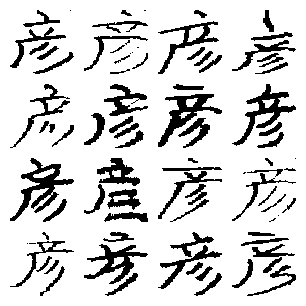 彦彦彦彦
彦彦彦彦
彦彦彦彦
彦彦彦彦